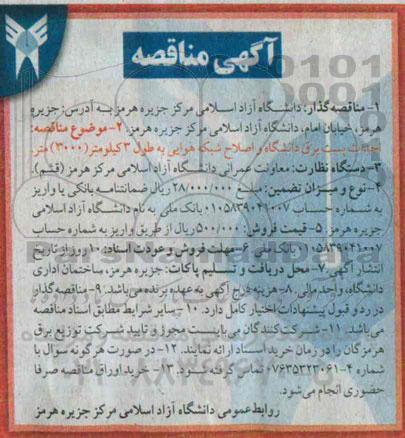 آگهی مناقصه
۱- مناقصه گذار: دانشگاه آزاد اسلامی مرکز جزیره هرمز به آدرس: جزیره
هرمز، خیابان امام، دانشگاه آزاد اسلامی مرکز جزیره هرمز، ۲- موضوع مناقصه:
احداث پست برق دانشگاه و اصلاح شبکه هوایی به طول ۳ کیلومتر (۳۰۰۰) متر.
۳- دستگاه نظارت: معاونت عمرانی دانشگاه آزاد اسلامی مرکز هرمز (قشم).
۴- نوع و میزان تضمین: مبلغ ۲۸/۰۰۰/۰۰۰ ریال ضمانتنامه بانکی یا واریز
به شماره حساب ۰۱۰۵۸۳۹۰۴۱۰۰۷ بانک ملی به نام دانشگاه آزاد اسلامی
جزیره هرمز. ۵- قیمت فروش: ۵۰۰/۰۰۰ ریال از طریق واریز به شماره حساب
۰۱۰۵۸۳۹۰۴۱۰۰۷ بانک ملی ۶- مهلت فروش و عودت اسناد: ۱۰ روز از تاریخ
انتشار آگهی. ۷- محل دریافت و تسلیم پاکات: جزیره هرمز، ساختمان اداری
دانشگاه، واحد مالی. ۸- هزینه درج آگهی به عهده برنده می‌باشد. ۹- مناقصه گذار
در رد و قبول پیشنهادات اختیار کامل دارد. ۱۰- سایر شرایط مطابق اسناد مناقصه
می‌باشد. ۱۱- شرکت کنندگان می‌بایست مجوز و تایید شرکت توزیع برق
هرمزگان را در زمان خرید اسناد ارائه نمایند. ۱۲- در صورت هر گونه سوال با
شماره ۴-۰۷۶۳۵۳۲۳۰۶۱ تماس گرفته شود. ۱۳- خرید اوراق مناقصه صرفا
حضوری انجام می‌شود.
روابط عمومی دانشگاه آزاد اسلامی مرکز جزیره هرمز